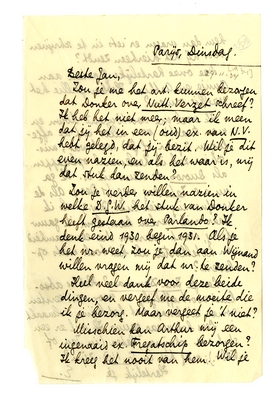 Parijs, Dinsdag.
Beste Jan,
Zou je me het art. kunnen bezorgen
dat Donker over Nutt. Verzet schreef?
Ik heb het niet meer; maar ik meen
dat jij het in een (oud) ex. van N.V.
hebt gelegd, dat jij bezit. Wil je dit
even nazien, en als het waar is, mij
dat stuk dan zenden?
Zou je verder willen nazien in
welke D.G.W. het stuk van Donker
heeft gestaan over Parlando? Ik
denk eind 1930 begin 1931. Als je
het nr. weet, zou je dan aan Wijnand
willen vragen mij dat nr. te zenden?
Heel veel dank voor deze beide
dingen, en vergeef me de moeite die
ik je bezorg. Maar vergeet je 't niet?
Misschien kan Arthur mij een
ingenaaid ex. Fregatschip bezorgen?
Ik kreeg het nooit van hem. Wil je